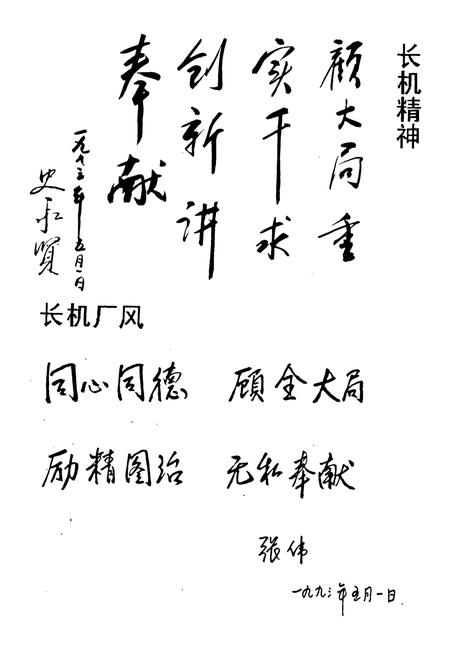 长机精神
顾大局重
实干求
创新讲
奉献
一九九三年五月一日
史永贤
长机厂风
同心同德 顾全大局
励精图治 无私奉献
张伟
一九九三年五月一日